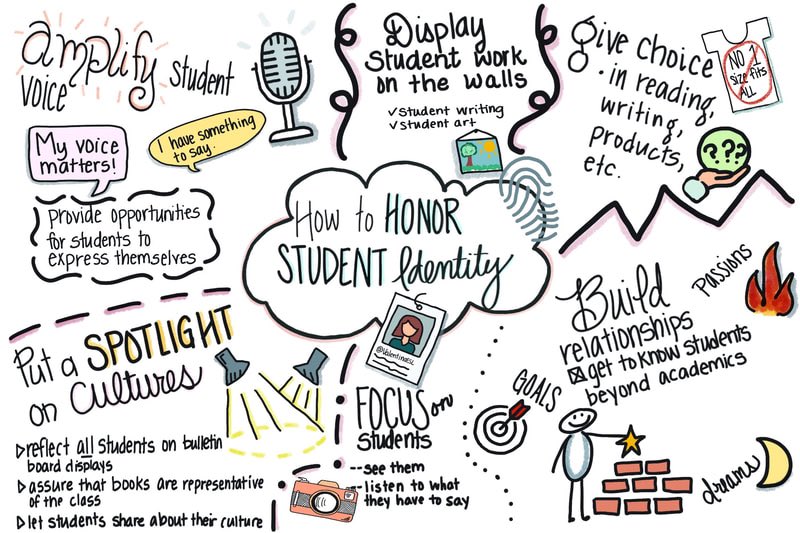 amplify student
voice
My voice
matters!
I have something
to say.
Provide opportunities
for students to
express themselves
Display
student work
on the walls
✓student writing
✓student art
Give choice
in reading,
writing,
products,
etc.
NO 1
size fits
ALL
???
How to HONOR
STUDENT Identity
@ValentinaESL
Put a SPOTLIGHT
on Cultures
▷reflect all students on bulletin
board displays
▷assure that books are representative
of the class
▷let students share about their culture
FOCUS on
students
--see them
--listen to what
they have to say
Build
relationships
☒get to know students
beyond academics
Passions
GOALS
dreams